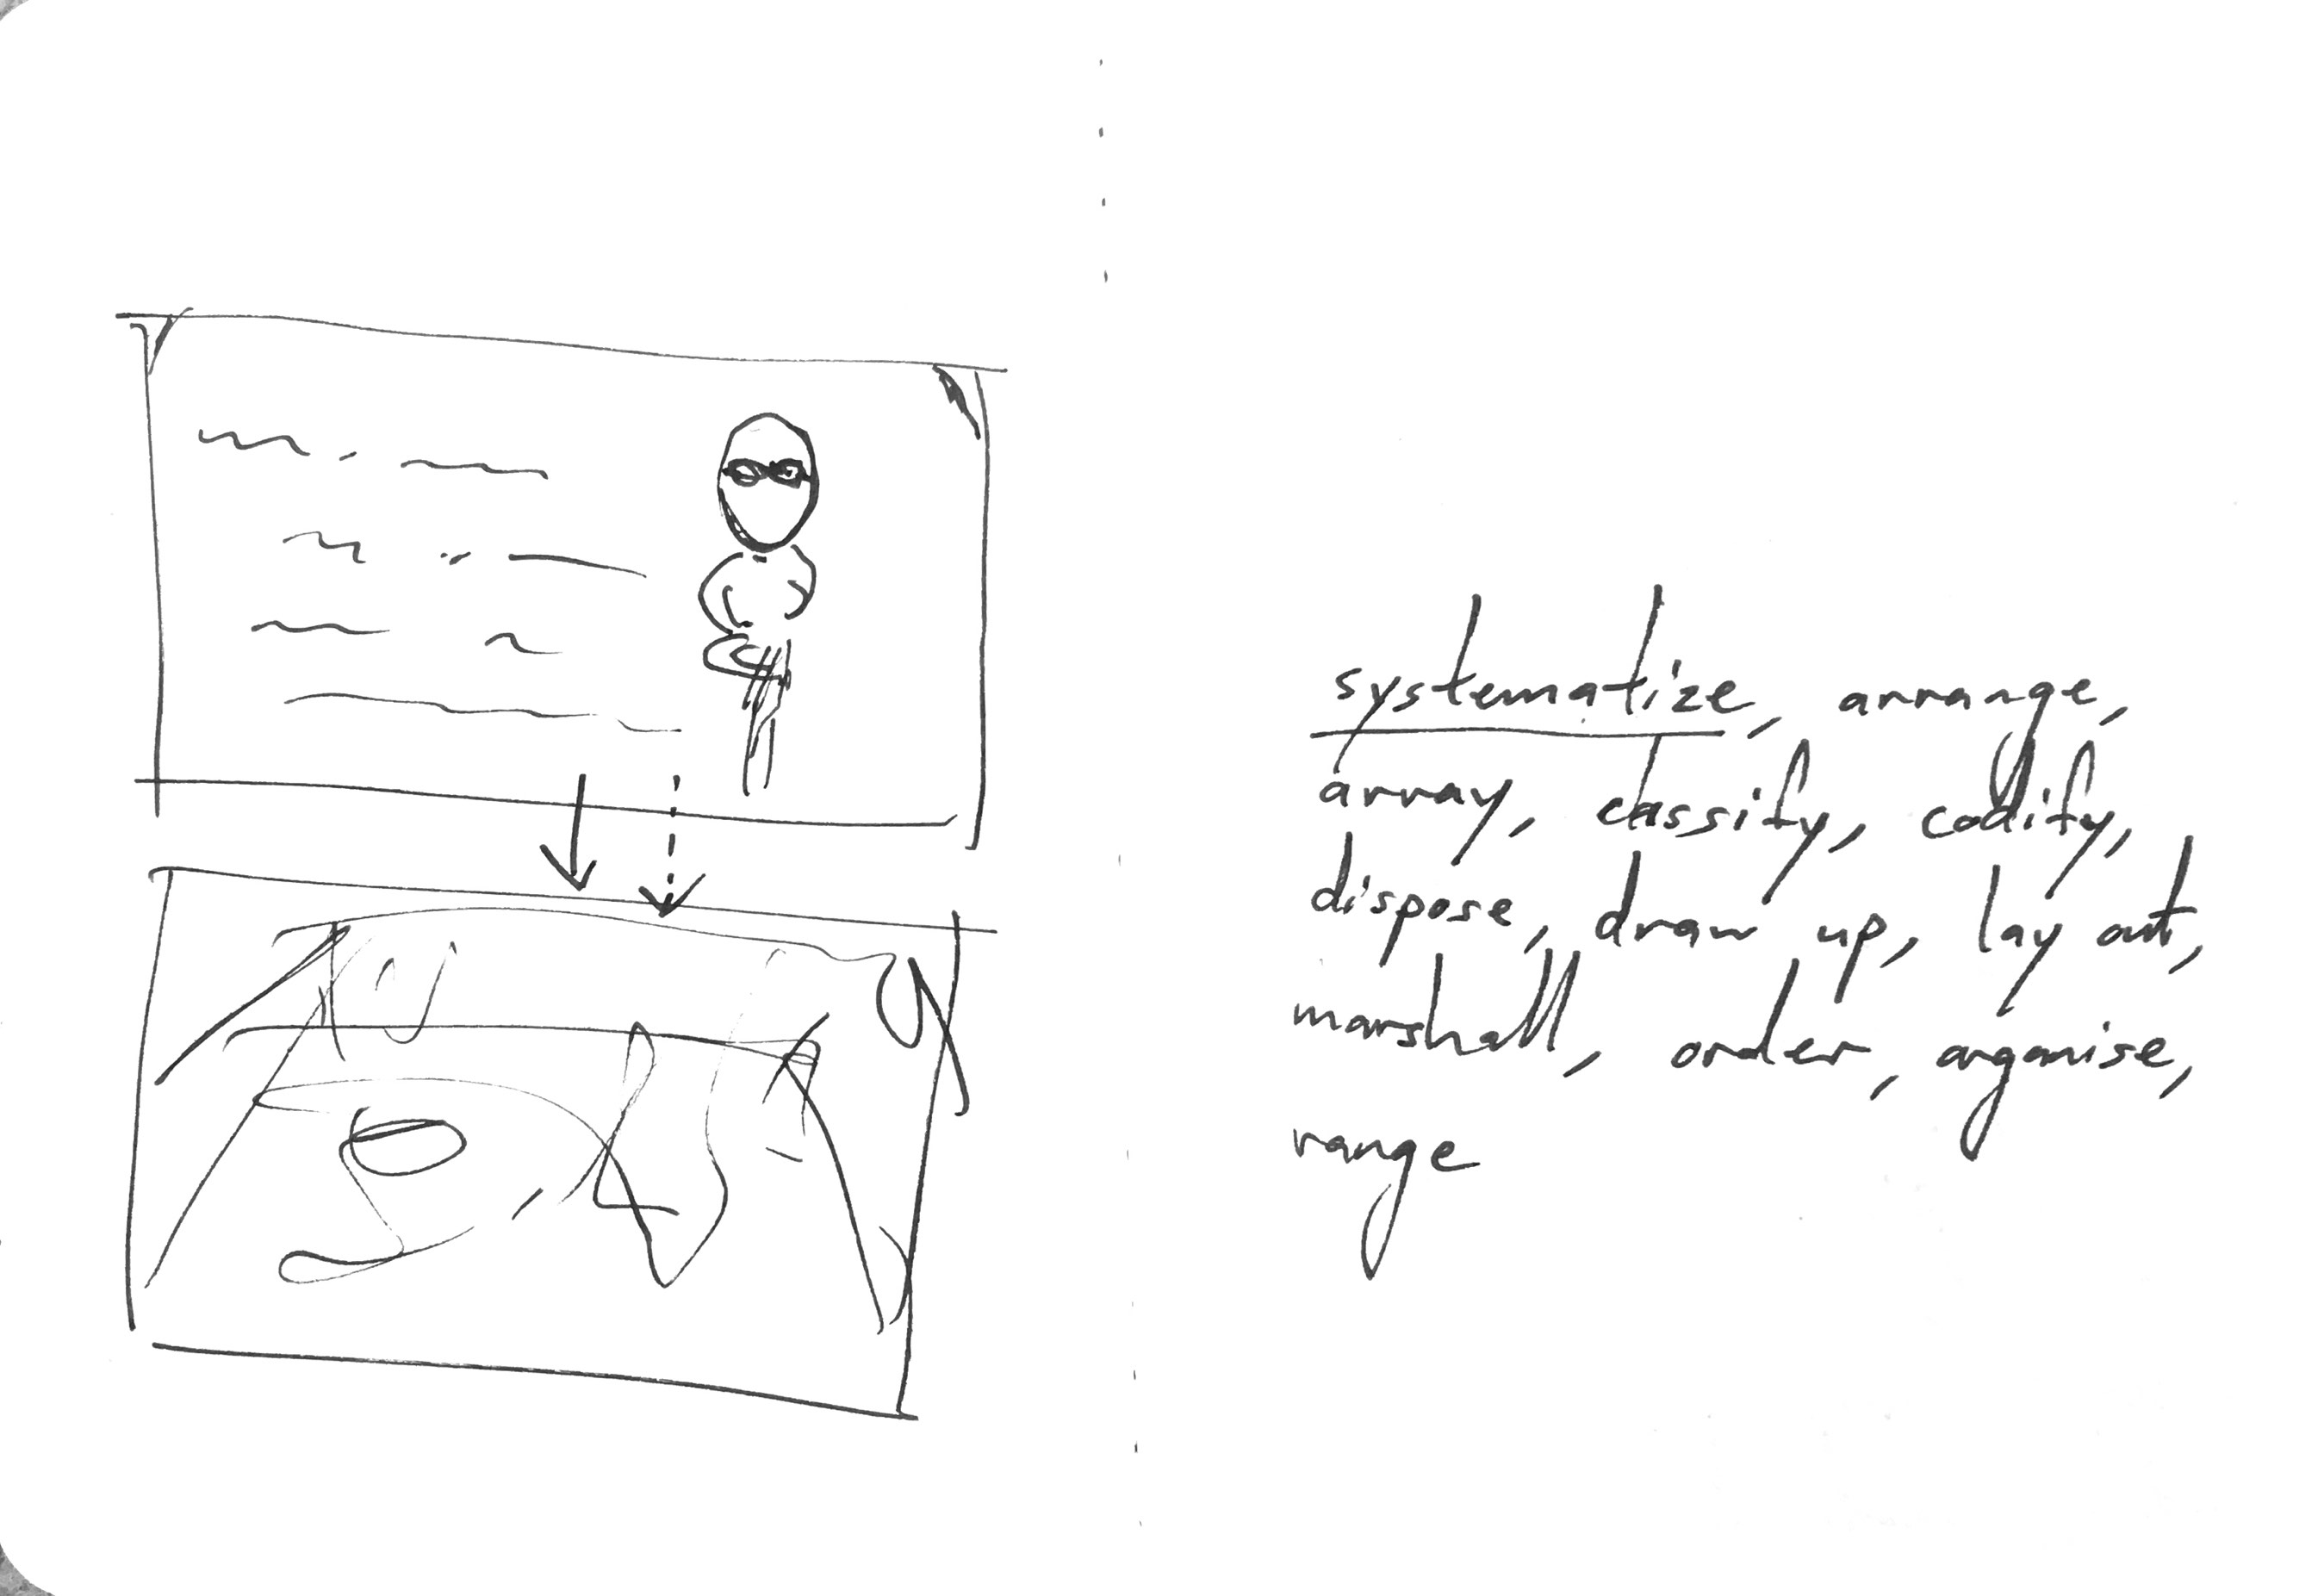 systematize, arrange,
array, classify, codify,
dispose, draw up, lay out,
marshall, order, organise,
range